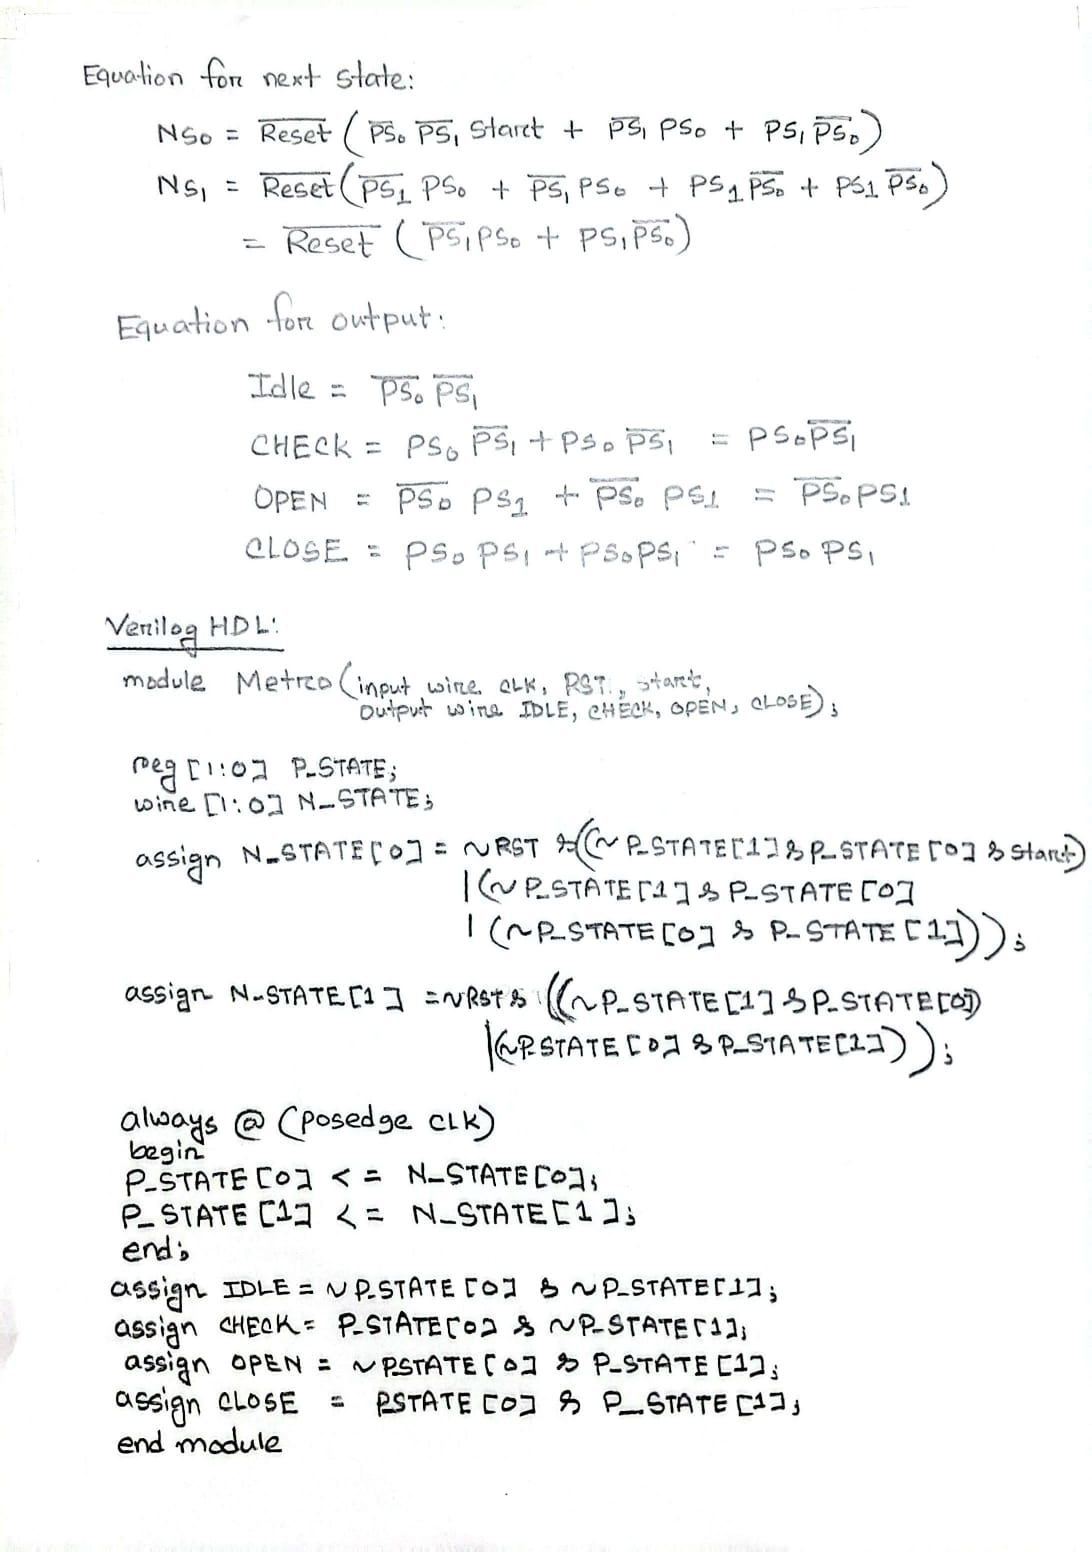 Equation for next state:
NS₀ = R̅e̅s̅e̅t̅ ( P̅S̅₀ P̅S̅₁ Start + P̅S̅₁ PS₀ + PS₁ P̅S̅₀ )
NS₁ = R̅e̅s̅e̅t̅ ( P̅S̅₁ PS₀ + P̅S̅₁ PS₀ + PS₁ P̅S̅₀ + PS₁ P̅S̅₀ )
= R̅e̅s̅e̅t̅ ( P̅S̅₁ PS₀ + PS₁ P̅S̅₀ )
Equation for output:
Idle = P̅S̅₀ P̅S̅₁
CHECK = PS₀ P̅S̅₁ + PS₀ P̅S̅₁ = PS₀ P̅S̅₁
OPEN = P̅S̅₀ PS₁ + P̅S̅₀ PS₁ = P̅S̅₀ PS₁
CLOSE = PS₀ PS₁ + PS₀ PS₁ = PS₀ PS₁
Verilog HDL:
module Metro (input wire CLK, RST, start,
output wire IDLE, CHECK, OPEN, CLOSE);
reg [1:0] P_STATE;
wire [1:0] N_STATE;
assign N_STATE[0] = ~RST & ((~P_STATE[1] & P_STATE[0] & Start)
| (~P_STATE[1] & P_STATE[0]
| (~P_STATE[0] & P_STATE[1]));
assign N_STATE[1] = ~RST & ((~P_STATE[1] & P_STATE[0])
| (~P_STATE[0] & P_STATE[1]));
always @ (posedge CLK)
begin
P_STATE[0] <= N_STATE[0];
P_STATE[1] <= N_STATE[1];
end;
assign IDLE = ~P_STATE[0] & ~P_STATE[1];
assign CHECK = P_STATE[0] & ~P_STATE[1];
assign OPEN = ~P_STATE[0] & P_STATE[1];
assign CLOSE = P_STATE[0] & P_STATE[1];
end module